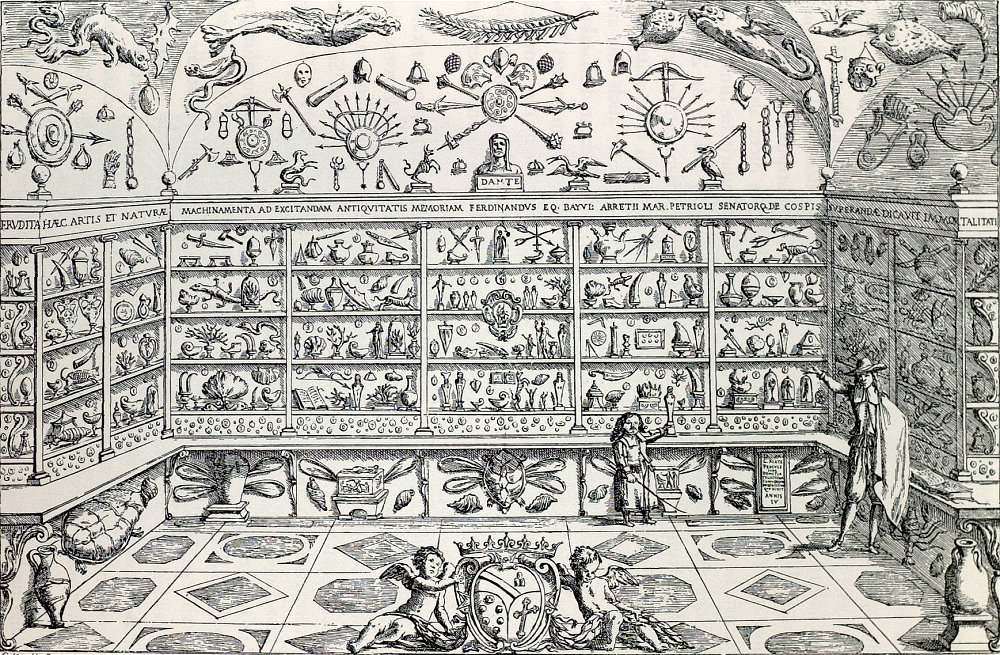 ERVDITA HÆC ARTIS ET NATVRÆ MACHINAMENTA AD EXCITANDAM ANTIQVITATIS MEMORIAM FERDINANDVS EQ. BAYVL: ARRETII MAR. PETRIOLI SENATORQ. DE COSPIS
DANTE
ANNIS
LV